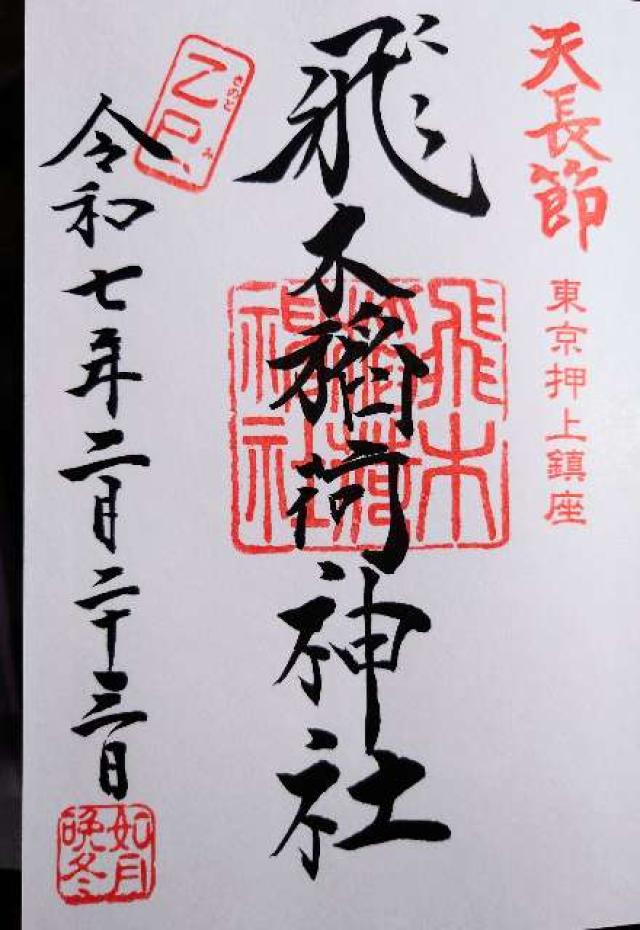 天長節
東京押上鎮座
飛木稲荷神社
飛木
稲荷
神社
乙巳
きのと み
令和七年二月二十三日
如月
晩冬